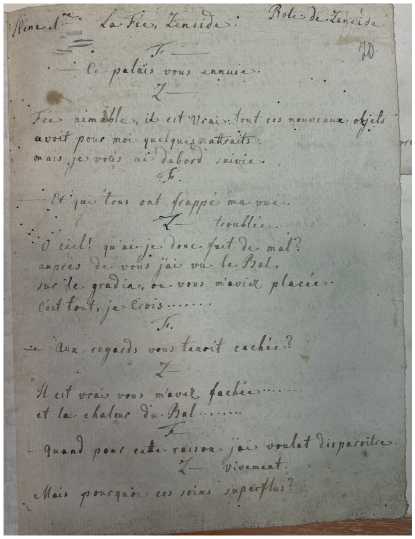 Scene 1re La Fée, Zeneïde Role de Zeneïde
70
F.
Ce palais vous ennuie.
Z
Fée aimable, il est vrai, tout ces nouveaux objets
avoit pour moi quelques attraits
mais je vous ai dabord suivie.
F.
Et que tous ont frappé ma vue.
Z troublée.
O ciel! qu'ai je donc fait de mal?
auprès de vous j'ai vu le Bal,
sur le gradin, ou vous m'aviez placée.
C'est tout, je Crois.......
F.
Aux regards vous tenoit cachée?
Z
Il est vrai vous m'avez fachée.......
et la chaleur du Bal.......
F
quand pour cette raison j'ai voulut disparoitre
Z vivement.
Mais pourquoi ces soins superflus?